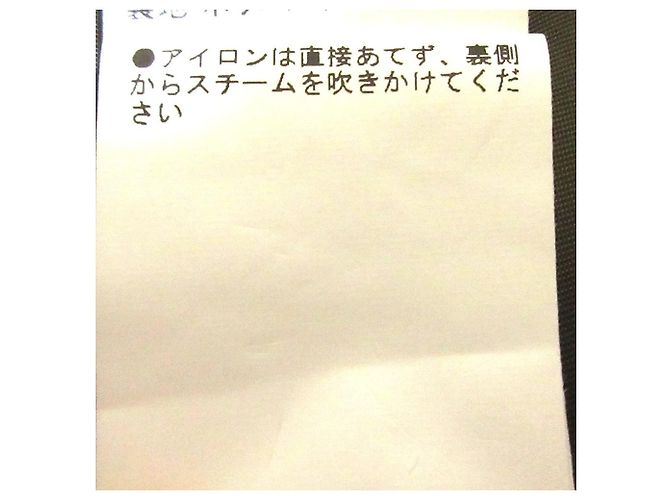 ●アイロンは直接あてず、裏側
からスチームを吹きかけてくだ
さい